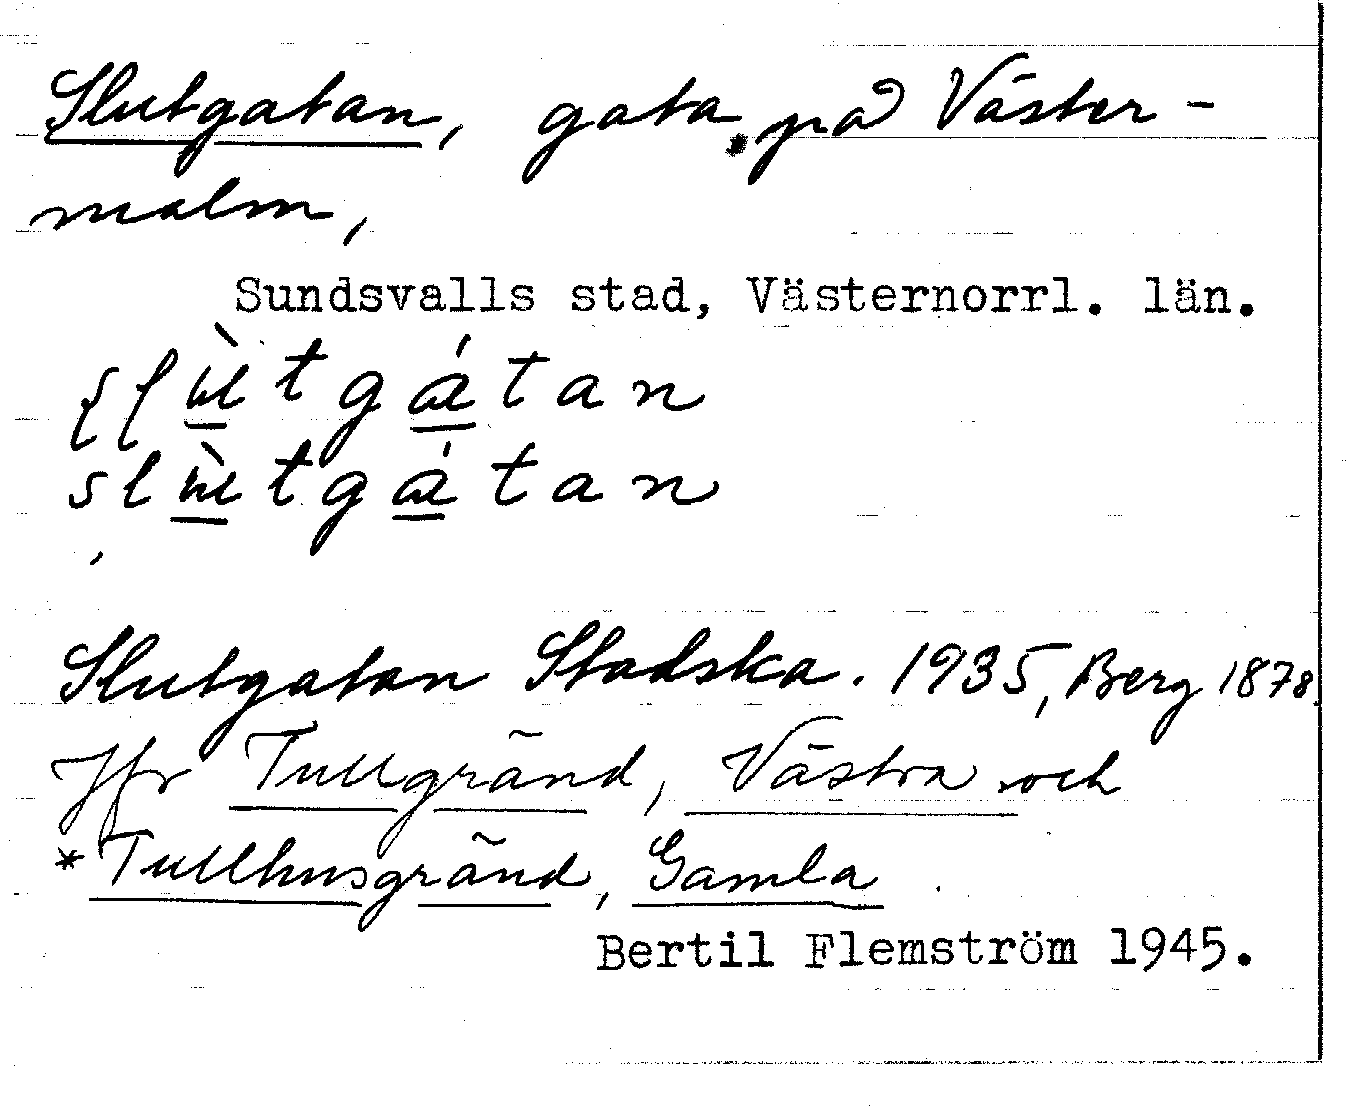 Slutgatan, gata på Väster-
malm,
Sundsvalls stad, Västernorrl. län.
slùtgátan
Slutgatan Stadska. 1935, Berg 1878.
Jfr Tullgränd, Västra och
*Tullhusgränd, Gamla
Bertil Flemström 1945.